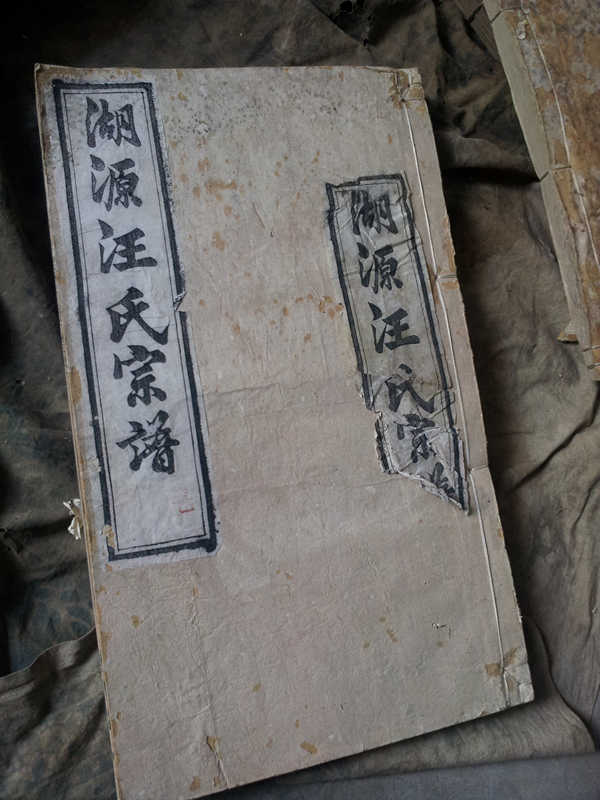 湖源汪氏宗譜
湖源汪氏宗